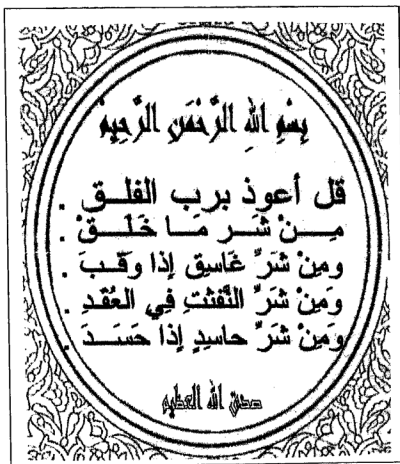 بِسْمِ اللهِ الرَّحْمَنِ الرَّحِيمْ
قل أعوذ برب الفلــق .
مِــنْ شَــر مــا خَلَــقْ .
ومِنْ شَرِّ غَاسِقٍ إذا وقَـبَ .
وَمِنْ شَرِّ النَّفثتِ فِي العُقَدِ .
وَمِنْ شَرِّ حاسِدٍ إذَا حَسَــدَ .
صدق الله العظيم